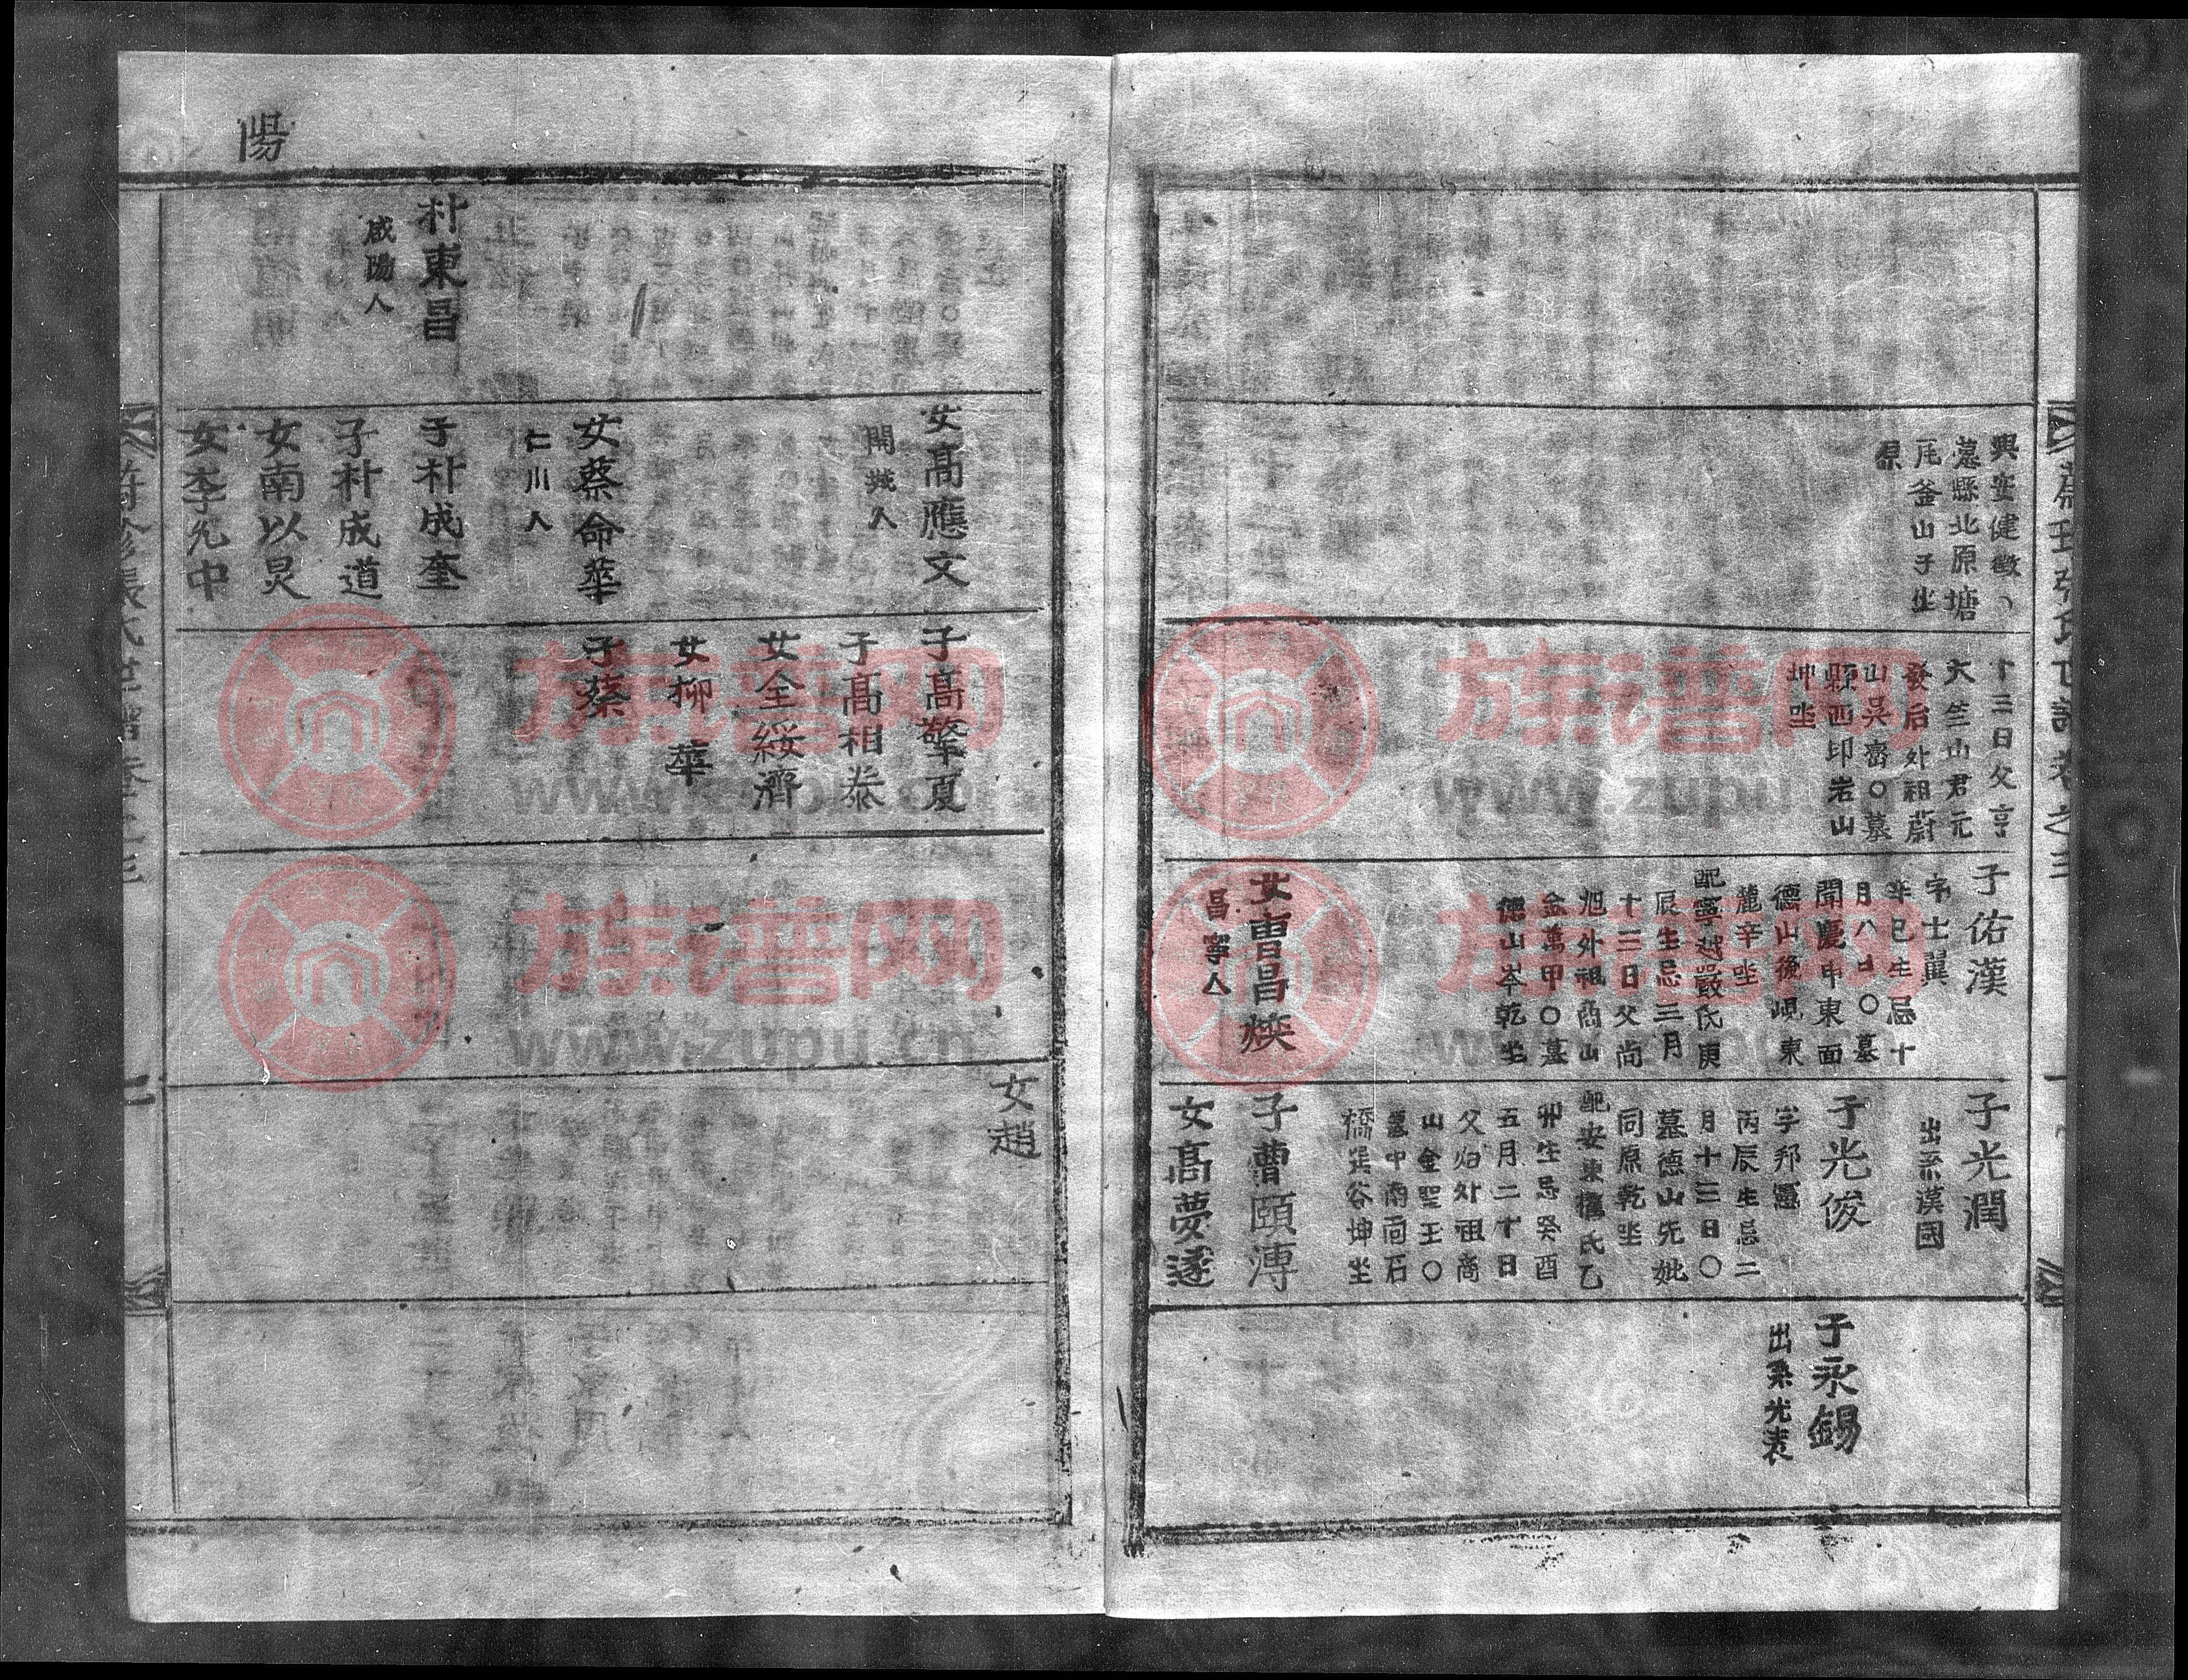 興安健徵
墓縣北原塘
尾釜山子坐
原
十三日父亨
大竺山君元
發后外祖蔚
山吳𡪹○墓
縣西印岩山
坤坐
子佑漢
字士翼
辛巳生忌十
月八日○墓
聞慶申東面
德山後峴東
麓辛坐
配寧越嚴氏庚
辰生忌三月
十三日父尚
旭外祖商山
金萬甲○墓
德山岑乾坐
女曺昌煐
昌寧人
子光潤
出系漢國
子光俊
字邦憲
丙辰生忌二
月十三日○
墓德山先妣
同原乾坐
配安東權氏乙
卯生忌癸酉
五月二十日
父 外祖商
山金聖玉○
墓中南面石
橋 谷坤坐
子曺頤溥
女高夢遂
子永錫
出系光表
女趙
女高應文
開城人
子高擎夏
子高相泰
女全綏濟
女柳 華
女蔡命華
仁川人
子蔡
朴東昌
咸陽人
子朴成奎
子朴成道
女南以炅
女李允中
陽
www.zupu.cn
族谱网
www.zupu.cn
族谱网
www.zupu.cn
族谱网
www.zupu.cn
族谱网